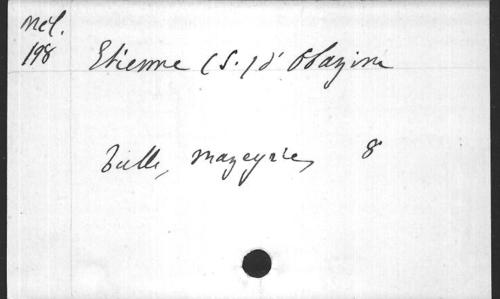 Mél.
198
Etienne (S.) d'Obazine
Tulle, Mazeyrie, 8°